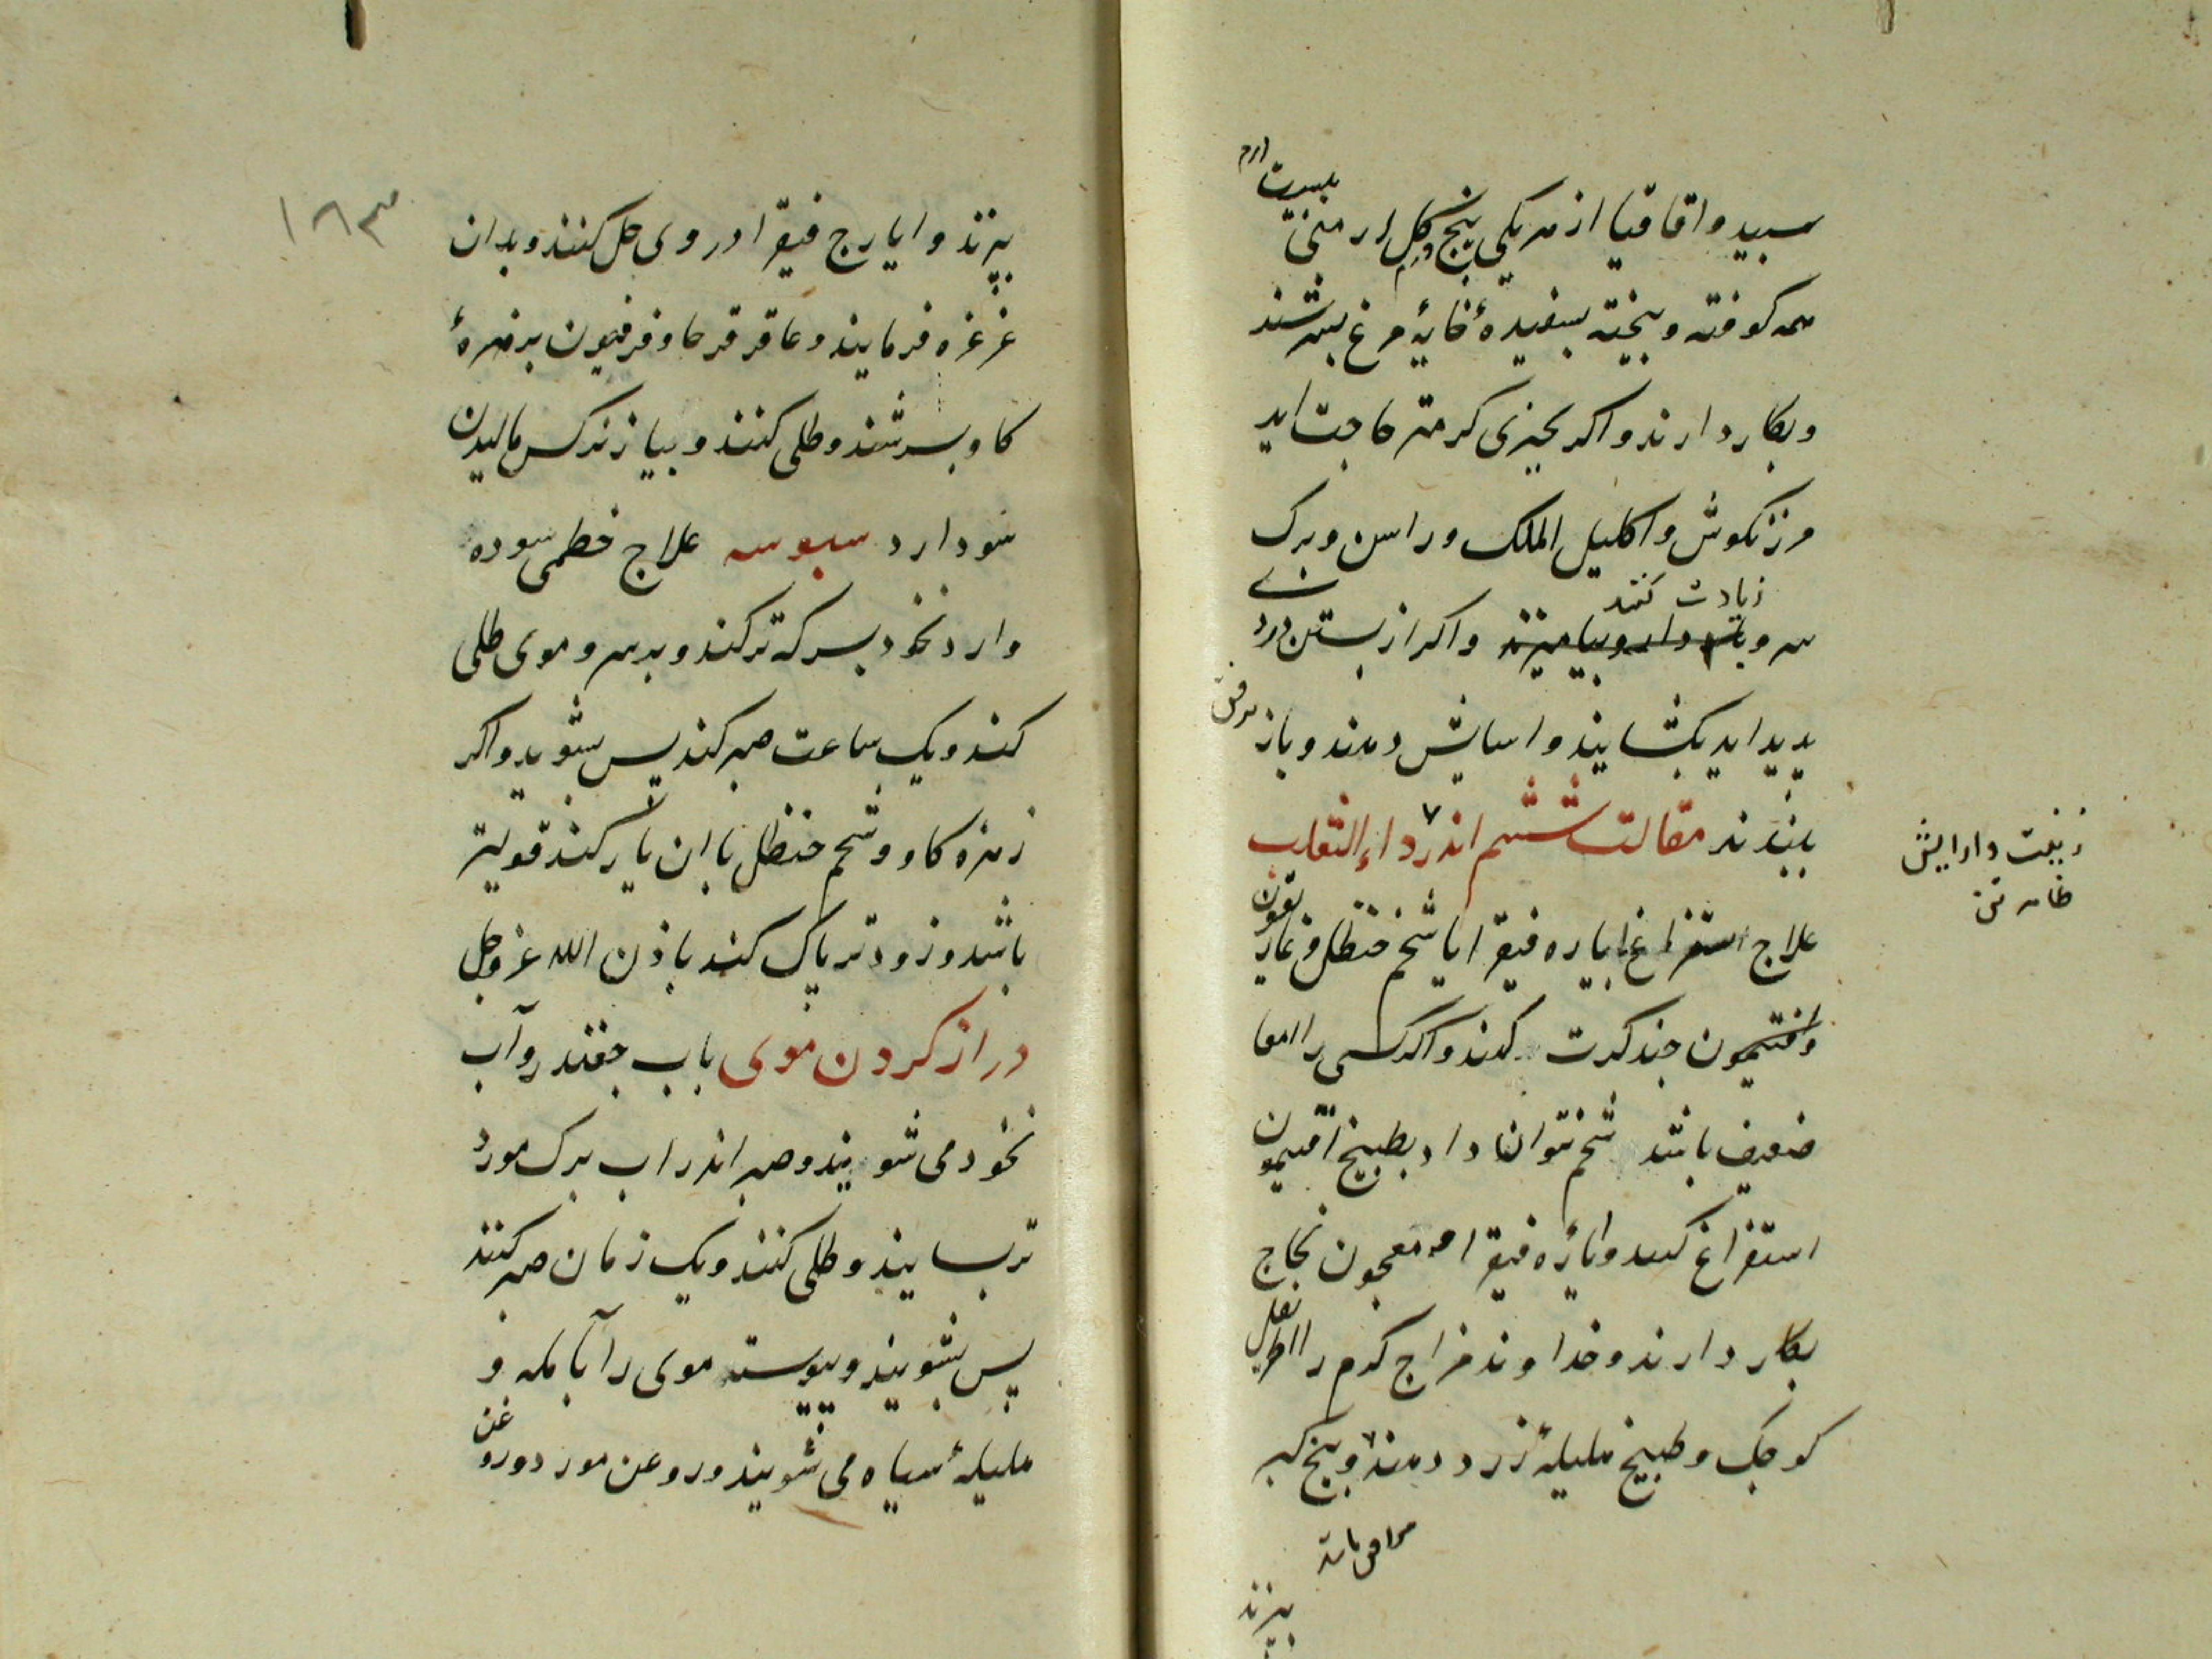 سبید و اقاقیا از هر یکی پنج درم گل ارمنی بیست درم
همه کوفته و بیخته بسفیدهٔ خایهٔ مرغ بسرشند
و بکار دارند و اکر بچیزی کرمتر حاجت اید
مرزنکوش و اکلیل الملک و راسن و برک
سرو زیادت کنند و اکر از بستن درد
پدید اید بکشایند و اسایش دهند و باز برفق
ببندند مقالت ششم اندر داء الثعلب
علاج استفراغ ایاره فیقرا با شحم حنظل و غاریقون
و افتیمون چند کرت کنند و اکر کسی را امعا
ضعیف باشد شحم نتوان داد بطبیخ افتیمون
استفراغ کنند و ایاره فیقرا معجون نجاح
بکار دارند و خداوند مزاج کرم را اطریفل
کوجک و طبیخ هلیلهٔ زرد دهند و بیخ کبر
زینت و ارایش
ظاهر تن
بپزند
۱۸۳
بپزند و ایارج فیقرا در وی حل کنند و بدان
غرغره فرمایند و عاقرقرحا و فرفیون بزهرهٔ
کاو بسرشند و طلی کنند و بپیاز نرکس مالیدن
سود دارد سبوسه علاج خطمی سوده
و ارد نخود بسرکه ترکند و بر سر و موی طلی
کند و یک ساعت صبر کند پس بشوید و اکر
زهرهٔ کاو و شحم حنظل با ان یار کند قویتر
باشد و زودتر پاک کند باذن الله عز و جل
دراز کردن موی باب جغندر و آب
نخود می شویند و صبر اندر اب برک مورد
تر بسایند و طلی کنند و یک زمان صبر کنند
پس بشویند و پیوسته موی را بآ مله و
هلیلهٔ سیاه می شویند و روغن مورد و روغن